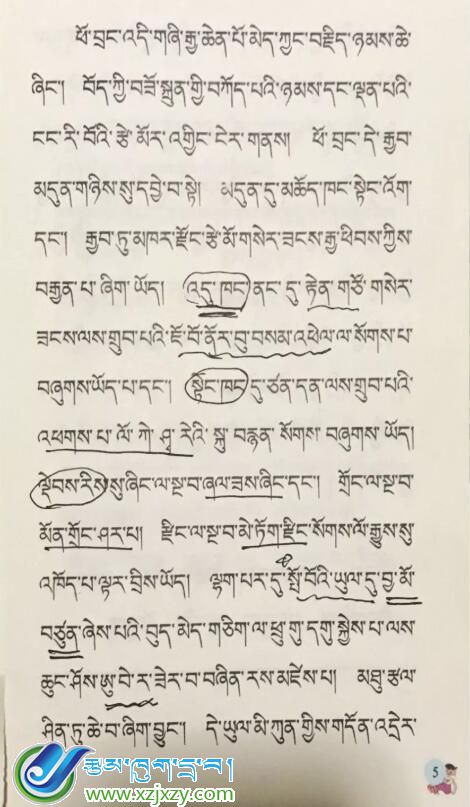 ཕོ་བྲང་འདི་གཞི་རྒྱ་ཆེན་པོ་མེད་ཀྱང་བརྗིད་ཉམས་ཆེ་
ཞིང་། བོད་ཀྱི་བཟོ་སྐྲུན་གྱི་བཀོད་པའི་ཉམས་དང་ལྡན་པའི་
ངང་རི་བོའི་རྩེ་མོར་འགྱིང་ངེར་གནས། ཕོ་བྲང་དེ་རྒྱབ་
མདུན་གཉིས་སུ་དབྱེ་བ་སྟེ། མདུན་དུ་མཆོད་ཁང་སྟེང་འོག་
དང་། རྒྱབ་ཏུ་མཁར་རྫོང་རྩེ་མོ་གསེར་ཟངས་རྒྱ་ཕིབས་ཀྱིས་
བརྒྱན་པ་ཞིག་ཡོད། འདུ་ཁང་ནང་དུ་རྟེན་གཙོ་གསེར་
ཟངས་ལས་གྲུབ་པའི་ཇོ་བོ་ནོར་བུ་བསམ་འཕེལ་ལ་སོགས་པ་
བཞུགས་ཡོད་པ་དང་། སྟེང་ཁང་དུ་ཙན་དན་ལས་གྲུབ་པའི་
འཕགས་པ་ལོ་ཀེ་ཤྭ་རེའི་སྐུ་བརྙན་སོགས་བཞུགས་ཡོད།
ལྡེབས་རིས་སུ་ཞིང་ལ་སྔ་བ་ཞལ་ཟས་ཞིང་དང་། གྲོང་ལ་སྔ་བ་
མོན་གྲོང་ཤར་པ། རྫིང་ལ་སྔ་བ་མེ་ཏོག་རྫིང་སོགས་ལོ་རྒྱུས་སུ་
འཁོད་པ་ལྟར་བྲིས་ཡོད། ལྷག་པར་དུ་སྤོ་བོའི་ཡུལ་དུ་བྱ་མོ་
བཙུན་ཞེས་པའི་བུད་མེད་གཅིག་ལ་ཕྲུ་གུ་དགུ་སྐྱེས་པ་ལས་
ཆུང་ཤོས་ཨུ་བེ་ར་ཟེར་བ་བཞིན་རས་མཛེས་པ། མཐུ་རྩལ་
ཤིན་ཏུ་ཆེ་བ་ཞིག་བྱུང་། དེ་ཡུལ་མི་ཀུན་གྱིས་གདོན་འདྲེར་
5
www.xzjxzy.com